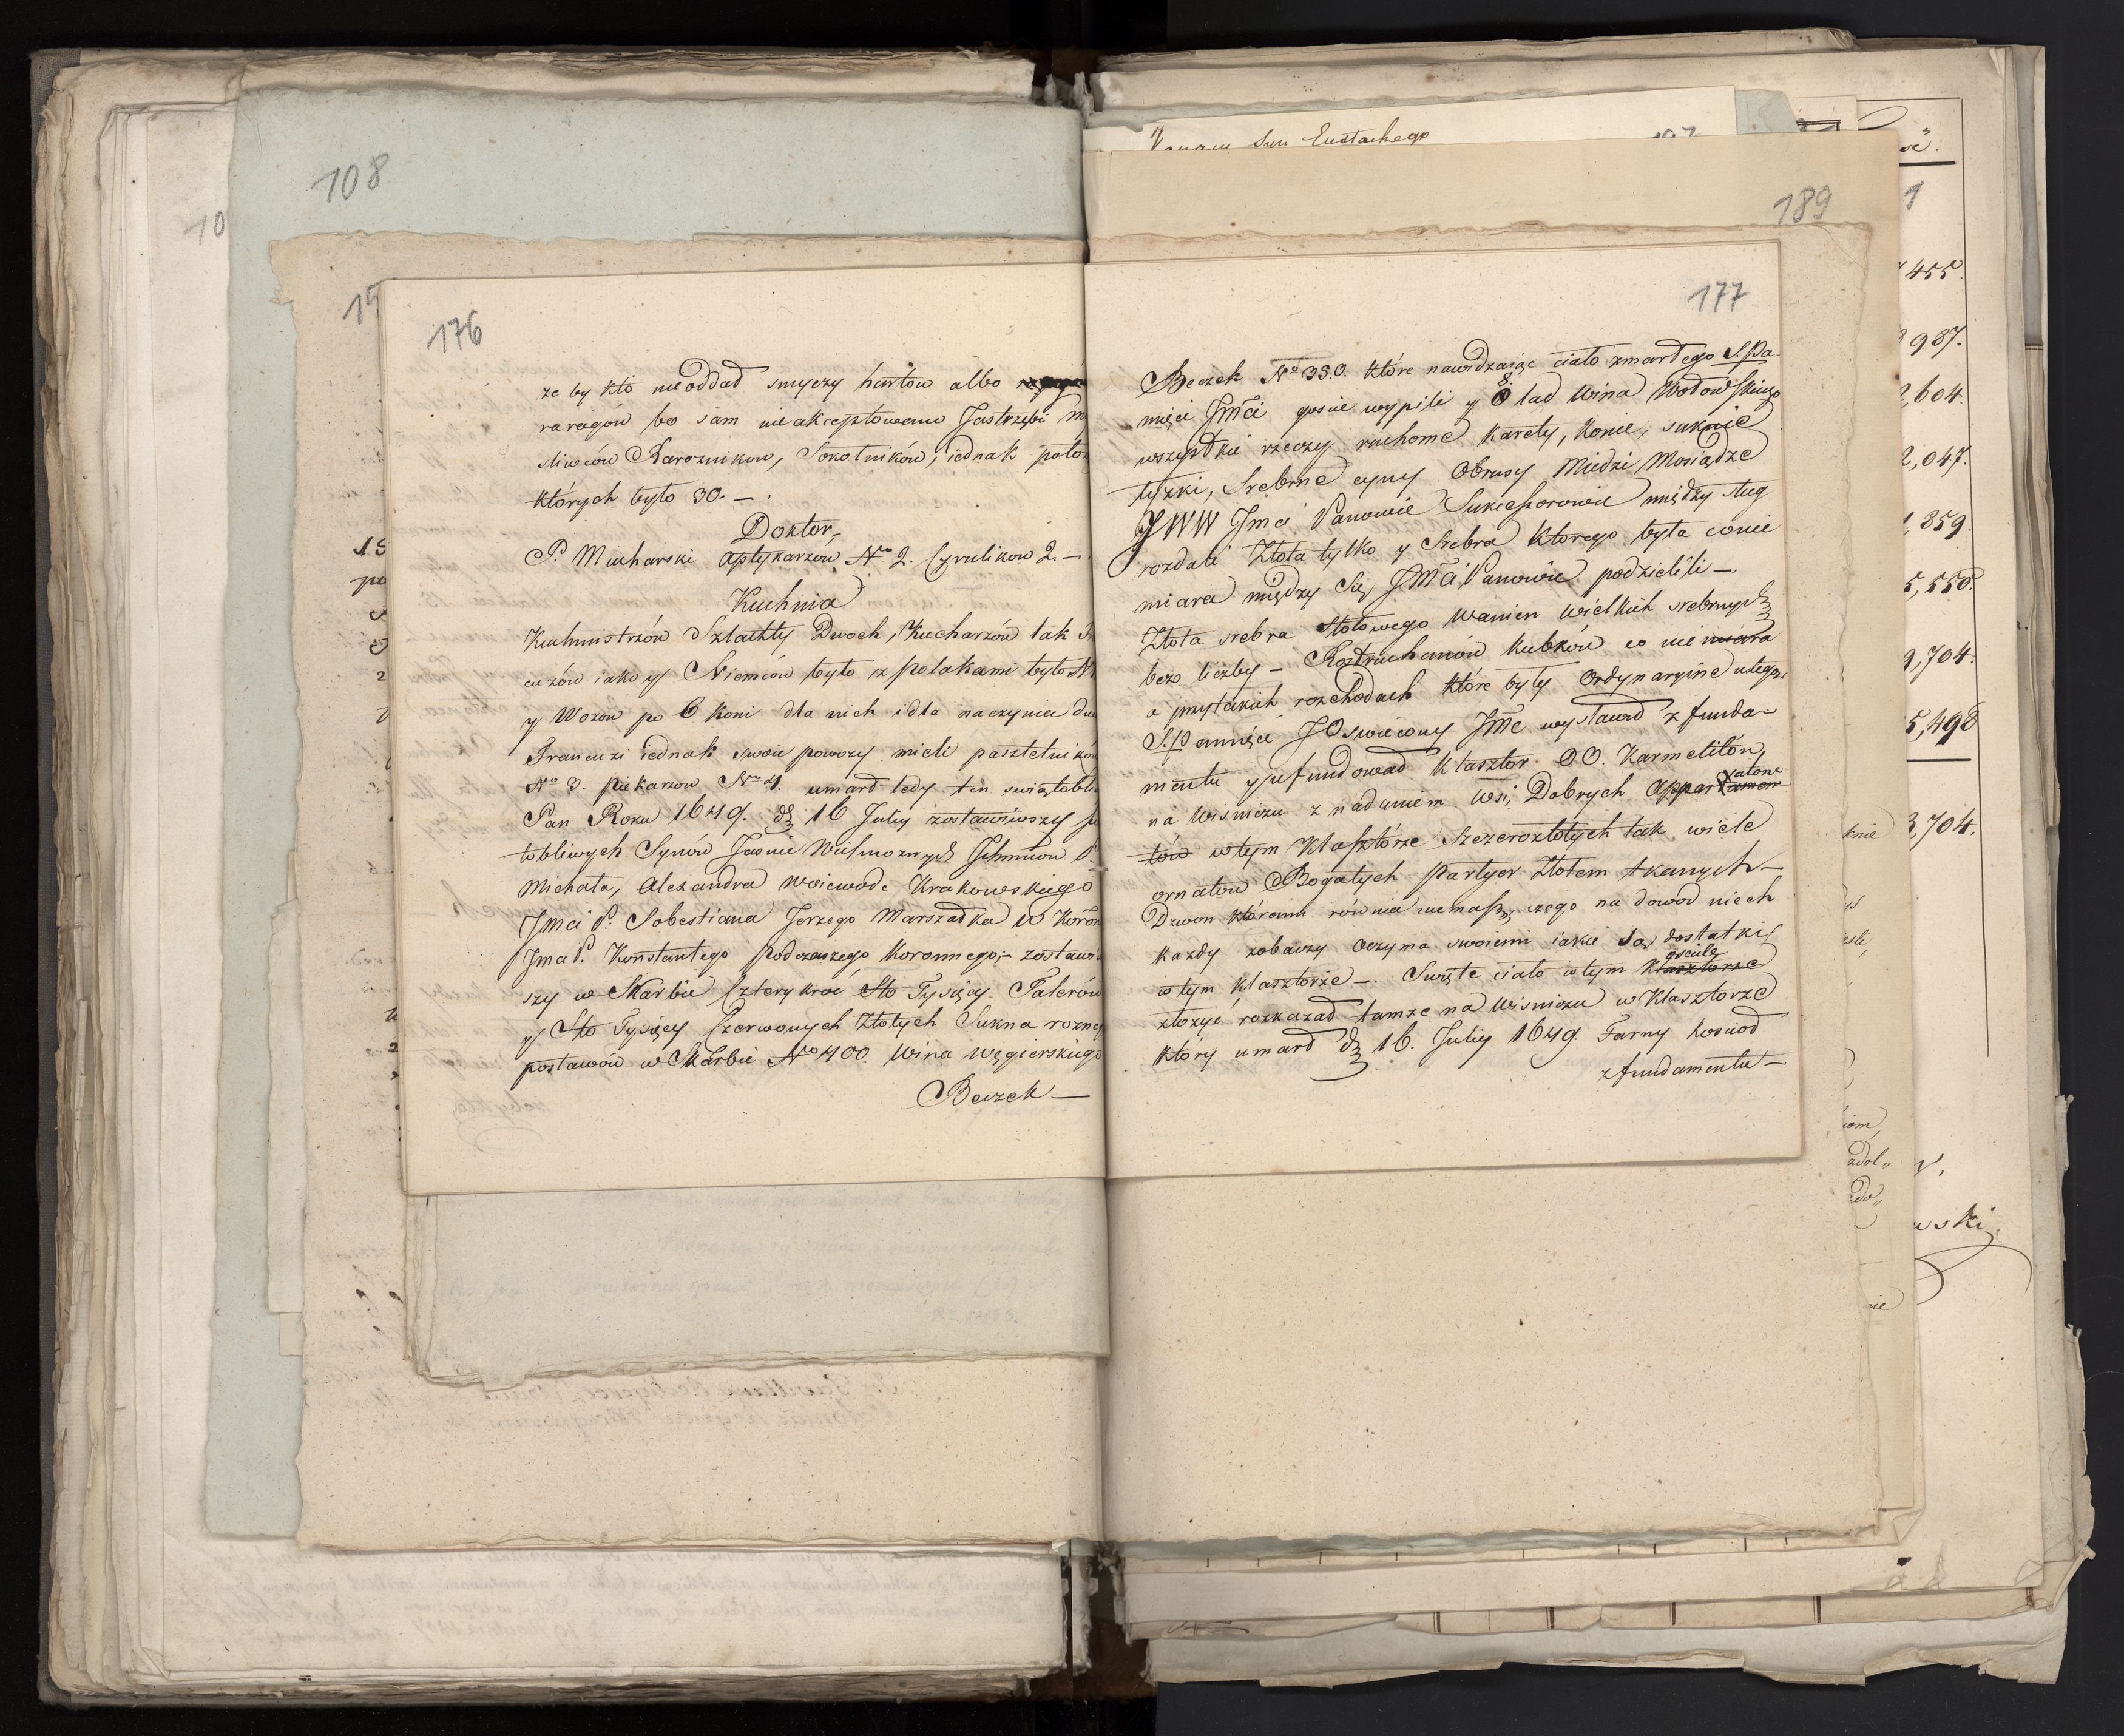 108
176
że by kto nie oddał smyczy hartow albo
rarogów bo sam nie akceptowano Jastrzębi
sliwców Rarozników, Sokolników, iednak
których było 30. —
Doktor,
P. Mucharski Aptykarzow No 2. Cyrulikow 2. —
Kuchnia
Kuchmistrzów Szlachty Dwoch, Kucharzów tak
cuzów iako y Niemców było, z polakami było
y Wozow po 6 koni dla nich i dla naczynia
Francuzi iednak swoie powozy mieli pasztetników
No 3. piekarzow No 4. umarł tedy ten
Pan Roku 1649. d 16 July zostawiwszy
tobliwych Synów Jasnie Wielmoznych Jchmciow P.
Michała, Alexandra Woiewode Krakowskiego
Jmci P. Sobestiana Jerzego Marszałka W Koron
Jma P. Konstantego podczaszego Koronnego;- zostawi
szy w Skarbie Cztery kroć Sto Tysięcy Talerów
y Sto Tysięcy Czerwonych Złotych Sukna rozne
postawów w Skarbie No 400. Wina Węgierskiego
Beczek —
Panowie Syn Eustachego
189
177
Beczek No 350. które nawidzaiąc ciało zmarłego S. Pa-
mięci Jmci goscie wypili y 8 lad Wina
wszystkie rzeczy ruchome Karety, Konie, suknie
łyzki, Srebrne cyny Obrusy Miedzi Mosiądze
JWW Jmci Panowie Sukcessorowie między sług
rozdali Złota tylko y Srebra ktorego była conie
miara między Się JMci Panowie podzielili —.
Złota srebra stołowego Wanien wielkich srebrnych
bez liczby — Roztruchanów Kubków co nie miara
a przytakich rozchodach które były Ordynaryine
S. pamięci JOswiecony Jmc wystawił z funda-
mentu y ufundował Klasztor OO. Karmelitów,
na Wisniczu z nadaniem Wsi, Dobrych Appartamen
tów w tym Klasztorze Szczerozłotych tak wiele
ornatow Bogatych Partyer Złotem tkanych —
Dzwon któremu równia niemasz, czego na dowod niech
kazdy zobaczy oczyma swoiemi iakie są dostatki
w tym klasztorze —. Swięte ciało w tym Klasztorze
osciele
złozyć rozkazał tamze na Wisniczu w Klasztorze
który umarł d 16. July 1649. Farny kosciół
z fundamentu —
455.
987.
2,604.
2,047.
1,859.
5,550.
9,704.
5,498
3,704.
wski